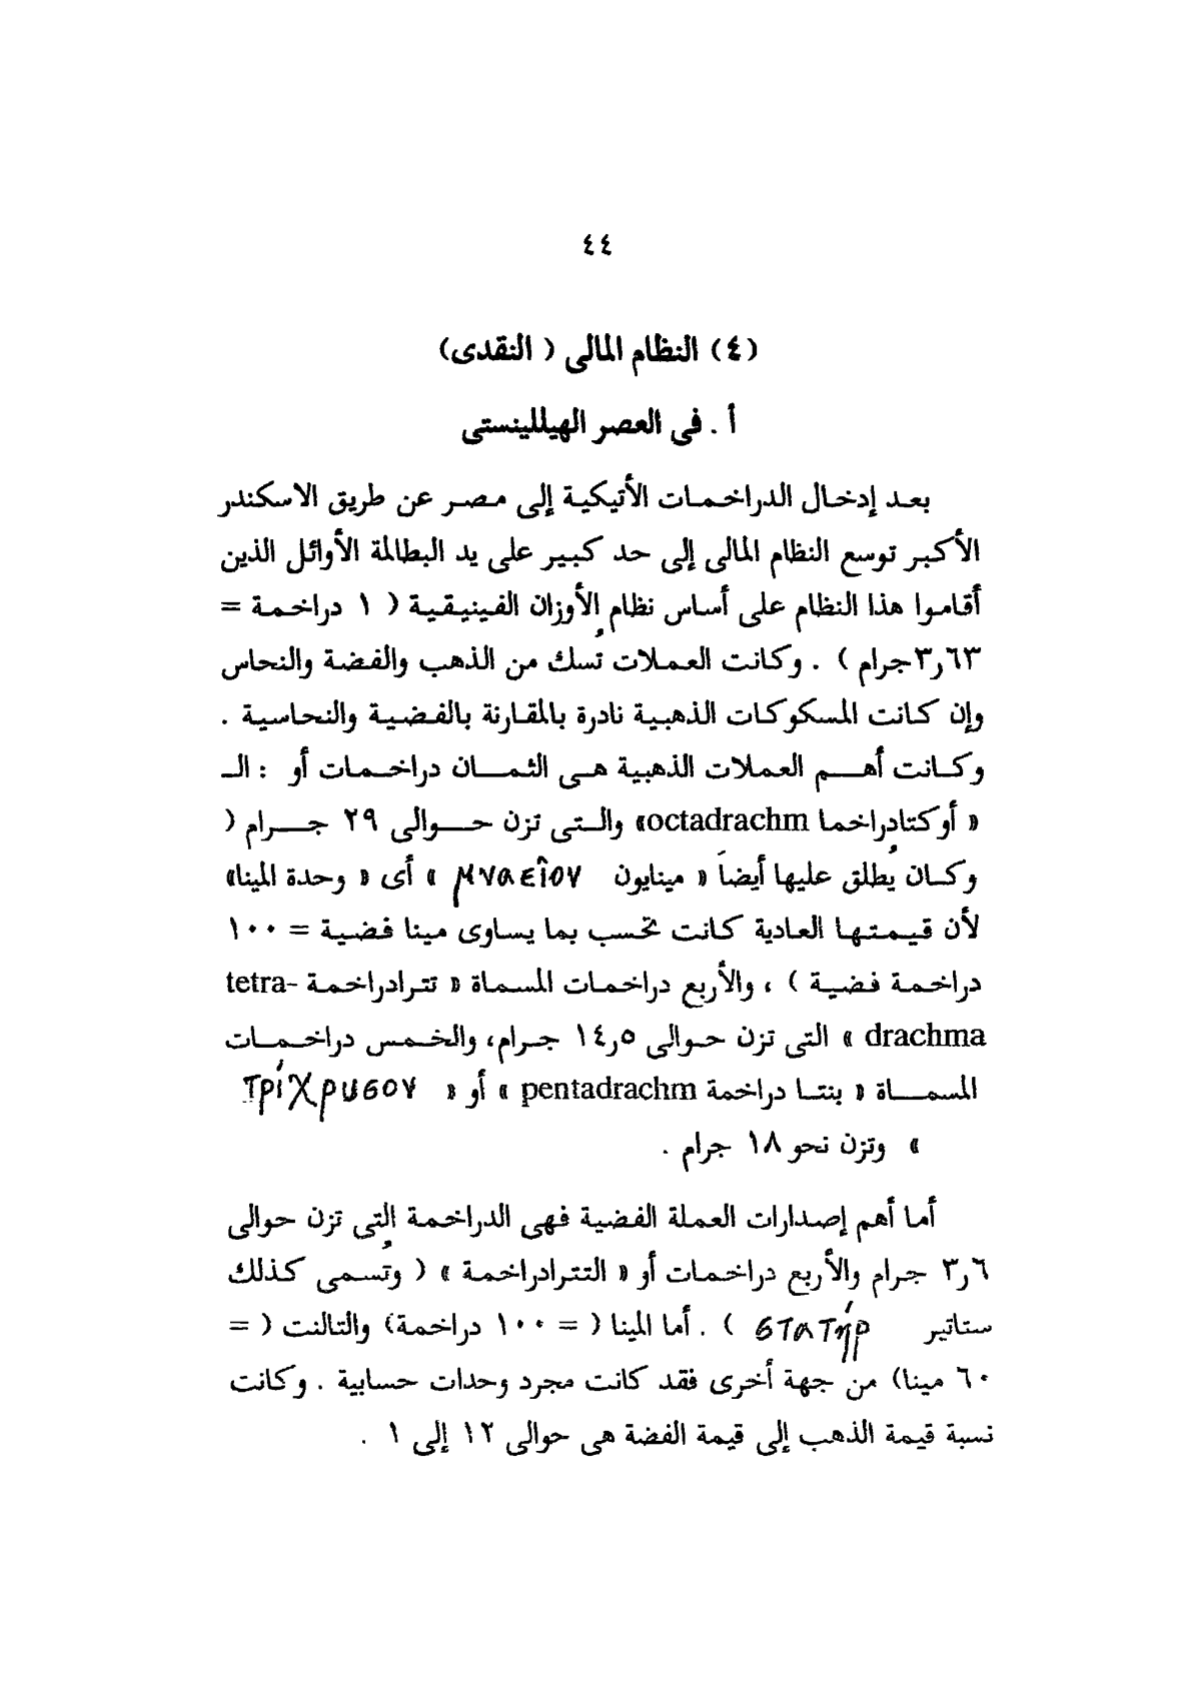 ٤٤
(٤) النظام المالى ( النقدى)
أ . فى العصر الهيللينستى
بعد إدخال الدراخمات الأتيكية إلى مصر عن طريق الاسكندر
الأكبر توسع النظام المالى إلى حد كبير على يد البطالمة الأوائل الذين
أقاموا هذا النظام على أساس نظام الأوزان الفينيقية ( ١ دراخمة =
٣٫٦٣جرام ) . وكانت العملات تُسك من الذهب والفضة والنحاس
وإن كانت المسكوكات الذهبية نادرة بالمقارنة بالفضية والنحاسية .
وكانت أهم العملات الذهبية هى الثمان دراخمات أو : الـ
« أوكتادراخما octadrachm» والتى تزن حوالى ٢٩ جرام (
وكان يُطلق عليها أيضاً « مينايون μναεῖον » أى « وحدة المينا»
لأن قيمتها العادية كانت تحسب بما يساوى مينا فضية = ١٠٠
دراخمة فضية ) ، والأربع دراخمات المسماة « تترادراخمة tetra-
drachma » التى تزن حوالى ١٤٫٥ جرام، والخمس دراخمات
المسماة « بنتا دراخمة pentadrachm » أو « τρίχρυσον
» وتزن نحو ١٨ جرام .
أما أهم إصدارات العملة الفضية فهى الدراخمة التى تزن حوالى
٣٫٦ جرام والأربع دراخمات أو « التترادراخمة » ( وتُسمى كذلك
ستاتير στατήρ ) . أما المينا ( = ١٠٠ دراخمة) والتالنت ( =
٦٠ مينا) من جهة أخرى فقد كانت مجرد وحدات حسابية . وكانت
نسبة قيمة الذهب إلى قيمة الفضة هى حوالى ١٢ إلى ١ .